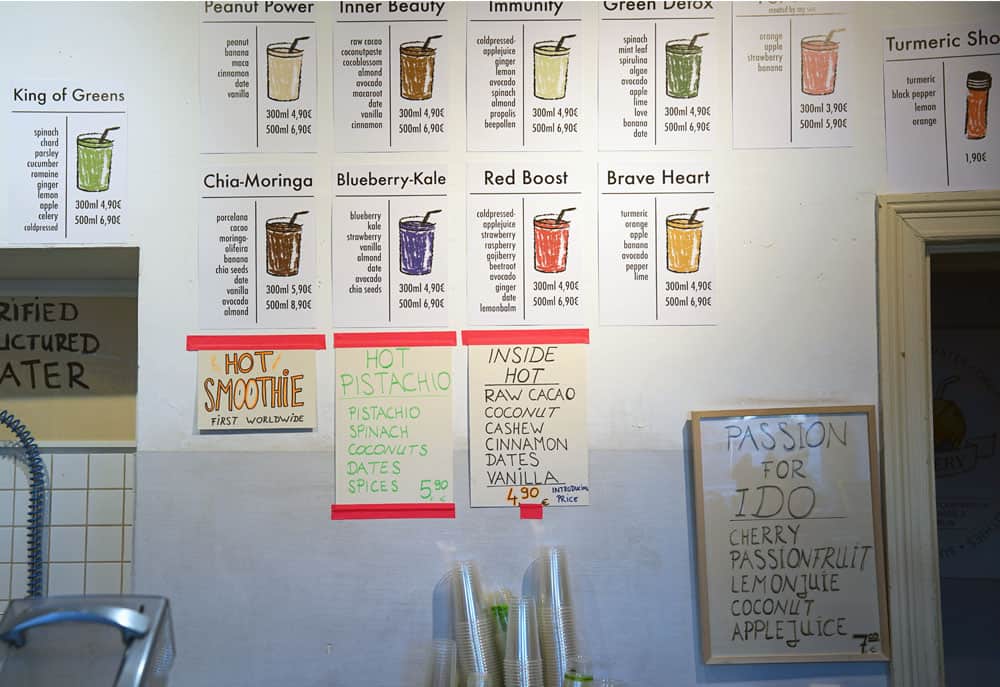 Peanut Power
peanut
banana
maca
cinnamon
date
vanilla
300ml 4,90€
500ml 6,90€
Inner Beauty
raw cacao
coconutpaste
cocoblossom
almond
avocado
macaroot
date
vanilla
cinnamon
300ml 4,90€
500ml 6,90€
Immunity
coldpressed-
applejuice
ginger
lemon
avocado
spinach
almond
propolis
beepollen
300ml 4,90€
500ml 6,90€
Green Detox
spinach
mint leaf
spirulina
algae
avocado
apple
lime
love
banana
date
300ml 4,90€
500ml 6,90€
created by my son
orange
apple
strawberry
banana
300ml 3,90€
500ml 5,90€
Turmeric Sho
turmeric
black pepper
lemon
orange
1,90€
King of Greens
spinach
chard
parsley
cucumber
romaine
ginger
lemon
apple
celery
coldpressed
300ml 4,90€
500ml 6,90€
Chia-Moringa
porcelana
cacao
moringa-
olifeira
banana
chia seeds
date
vanilla
avocado
almond
300ml 5,90€
500ml 8,90€
Blueberry-Kale
blueberry
kale
strawberry
vanilla
almond
date
avocado
chia seeds
300ml 4,90€
500ml 6,90€
Red Boost
coldpressed-
applejuice
strawberry
raspberry
gojiberry
beetroot
avocado
ginger
date
lemonbalm
300ml 4,90€
500ml 6,90€
Brave Heart
turmeric
orange
apple
banana
avocado
pepper
lime
300ml 4,90€
500ml 6,90€
RIFIED
UCTURED
ATER
HOT
SMOOTHIE
FIRST WORLDWIDE
HOT
PISTACHIO
PISTACHIO
SPINACH
COCONUTS
DATES
SPICES 5,90 €
INSIDE
HOT
RAW CACAO
COCONUT
CASHEW
CINNAMON
DATES
VANILLA
4,90 € INTRODUCING
PRICE
PASSION
FOR
IDO
CHERRY
PASSIONFRUIT
LEMONJUIE
COCONUT
APPLEJUICE
ERY